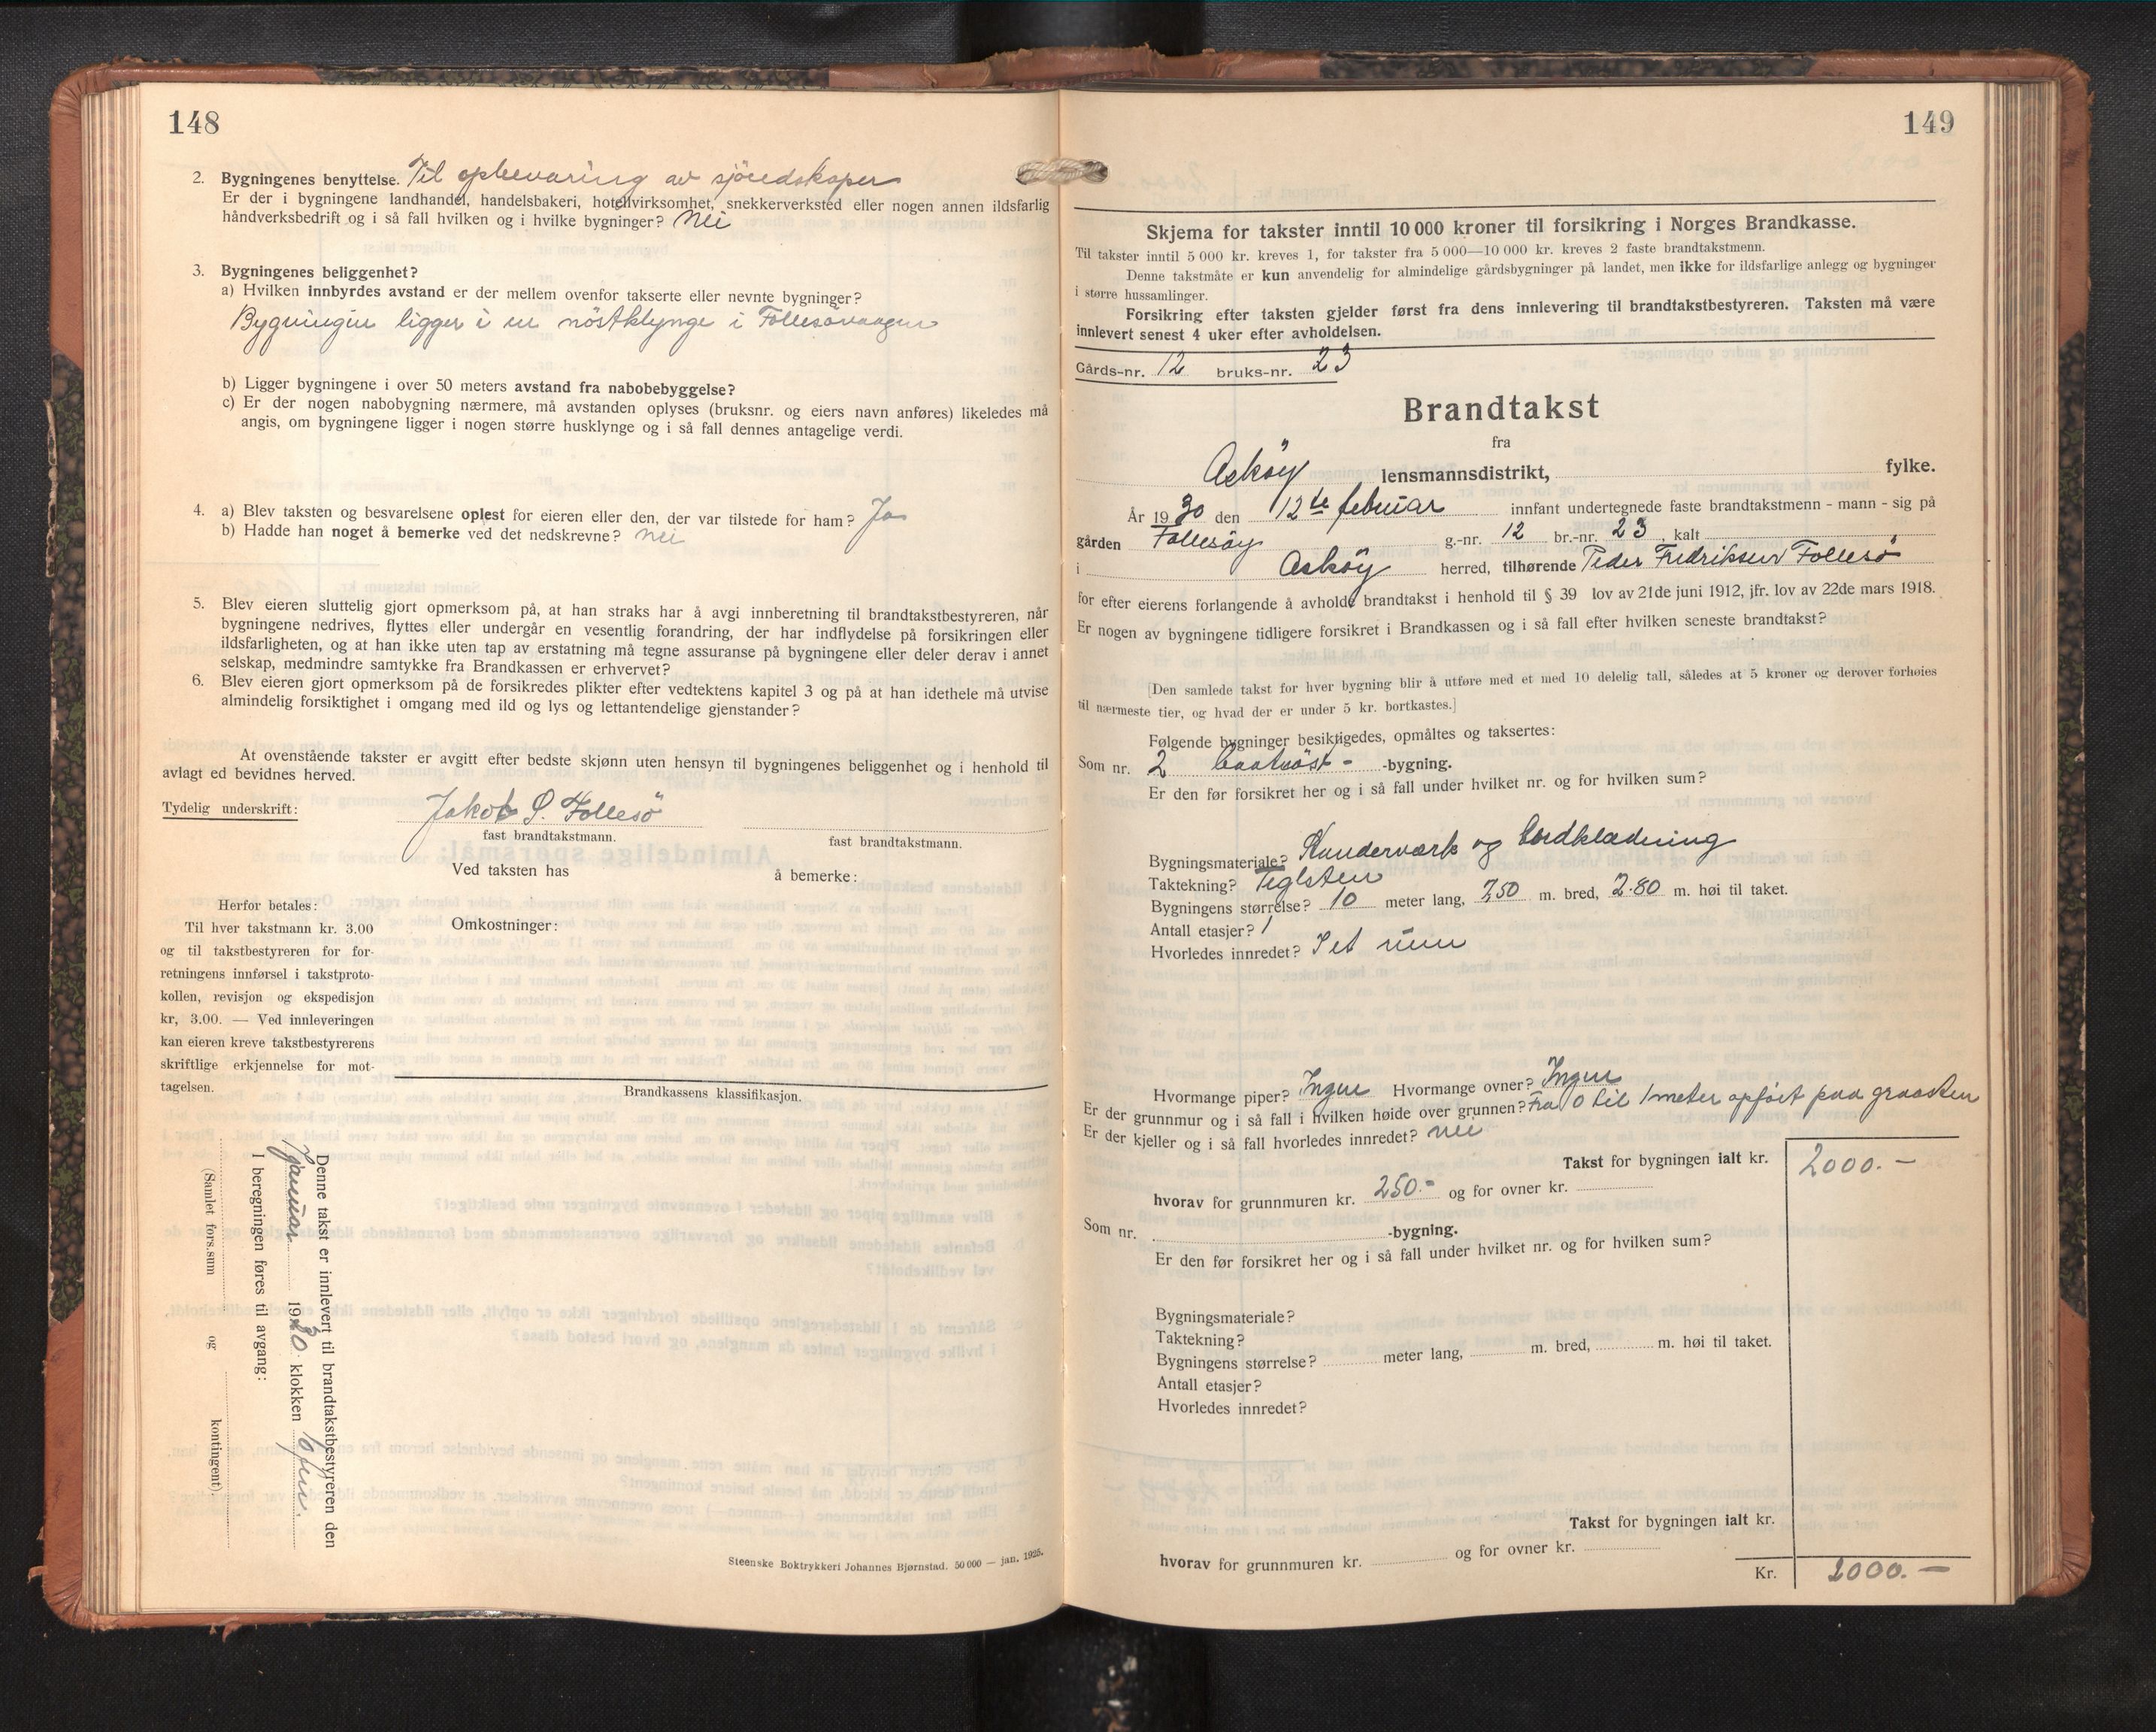 148
2. Bygningenes benyttelse. Til opbevaring av sjöredskaper
Er der i bygningene landhandel, handelsbakeri, hotellvirksomhet, snekkerverksted eller nogen annen ildsfarlig
håndverksbedrift og i så fall hvilken og i hvilke bygninger? Nei
3. Bygningenes beliggenhet?
a) Hvilken innbyrdes avstand er der mellem ovenfor takserte eller nevnte bygninger?
Bygningen ligger i en nöstklynge i Follesövaagen
b) Ligger bygningene i over 50 meters avstand fra nabobebyggelse?
c) Er der nogen nabobygning nærmere, må avstanden oplyses (bruksnr. og eiers navn anføres) likeledes må
angis, om bygningene ligger i nogen større husklynge og i så fall dennes antagelige verdi.
4. a) Blev taksten og besvarelsene oplest for eieren eller den, der var tilstede for ham? Ja
b) Hadde han noget å bemerke ved det nedskrevne? nei
5. Blev eieren sluttelig gjort opmerksom på, at han straks har å avgi innberetning til brandtakstbestyreren, når
bygningene nedrives, flyttes eller undergår en vesentlig forandring, der har indflydelse på forsikringen eller
ildsfarligheten, og at han ikke uten tap av erstatning må tegne assuranse på bygningene eller deler derav i annet
selskap, medmindre samtykke fra Brandkassen er erhvervet?
6. Blev eieren gjort opmerksom på de forsikredes plikter efter vedtektens kapitel 3 og på at han idethele må utvise
almindelig forsiktighet i omgang med ild og lys og lettantendelige gjenstander?
At ovenstående takster er avgitt efter bedste skjønn uten hensyn til bygningenes beliggenhet og i henhold til
avlagt ed bevidnes herved.
Tydelig underskrift: Jakob S. Follesö
fast brandtakstmann. fast brandtakstmann.
Ved taksten has å bemerke:
Herfor betales:
Til hver takstmann kr. 3.00
og til takstbestyreren for for-
retningens innførsel i takstproto-
kollen, revisjon og ekspedisjon
kr, 3.00. — Ved innleveringen
kan eieren kreve takstbestyrerens
skriftlige erkjennelse for mot-
tagelsen.
Omkostninger:
Brandkassens klassifikasjon.
Denne takst er innlevert til brandtakstbestyreren den
januar 1930 klokken
I beregningen føres til avgang:
(Samlet fors.sum og kontingent).
Steenske Boktrykkeri Johannes Bjørnstad. 50 000 — jan. 1925.
149
Skjema for takster inntil 10 000 kroner til forsikring i Norges Brandkasse.
Til takster inntil 5 000 kr. kreves 1, for takster fra 5 000—10 000 kr. kreves 2 faste brandtakstmenn.
Denne takstmåte er kun anvendelig for almindelige gårdsbygninger på landet, men ikke for ildsfarlige anlegg og bygninger
i større hussamlinger.
Forsikring efter taksten gjelder først fra dens innlevering til brandtakstbestyreren. Taksten må være
innlevert senest 4 uker efter avholdelsen.
Gårds-nr. 12 bruks-nr. 23
Brandtakst
fra
Asköy lensmannsdistrikt, fylke.
År 1930 den 12te februar innfant undertegnede faste brandtakstmenn - mann - sig på
gården Follesöy g.-nr. 12 br.-nr. 23, kalt
i Asköy herred, tilhørende Peder Fredriksen Follesö
for efter eierens forlangende å avholde brandtakst i henhold til § 39 lov av 21de juni 1912, jfr. lov av 22de mars 1918.
Er nogen av bygningene tidligere forsikret i Brandkassen og i så fall efter hvilken seneste brandtakst?
[Den samlede takst for hver bygning blir å utføre med et med 10 delelig tall, således at 5 kroner og derover forhøies
til nærmeste tier, og hvad der er under 5 kr. bortkastes.]
Følgende bygninger besiktigedes, opmåltes og taksertes:
Som nr. 2 baatnöst- -bygning.
Er den før forsikret her og i så fall under hvilket nr. og for hvilken sum?
Bygningsmateriale? Stenderværk og bordklædning
Taktekning? Teglsten
Bygningens størrelse? 10 meter lang, 7.50 m. bred, 2.80 m. høi til taket.
Antall etasjer? 1
Hvorledes innredet? I et rum
Hvormange piper? Ingen Hvormange ovner? Ingen
Er der grunnmur og i så fall i hvilken høide over grunnen? Fra 0 til 1 meter opført paa graasten
Er der kjeller og i så fall hvorledes innredet? nei
Takst for bygningen ialt kr. 2000.-
hvorav for grunnmuren kr. 250.- og for ovner kr.
Som nr. -bygning.
Er den før forsikret her og i så fall under hvilket nr. og for hvilken sum?
Bygningsmateriale?
Taktekning?
Bygningens størrelse? meter lang, m. bred, m. høi til taket.
Antall etasjer?
Hvorledes innredet?
Takst for bygningen ialt kr.
hvorav for grunnmuren kr. og for ovner kr.
Kr. 2000.-